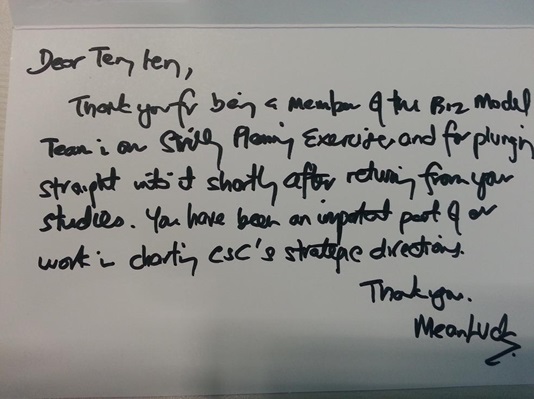 Dear Ten Len,
Thank you for being a member of the Biz Model
Team in our Planning Exercise, and for plunging
straight into it shortly after returning from your
studies. You have been an important part of our
work in charting CSC's strategic directions.
Thank you.